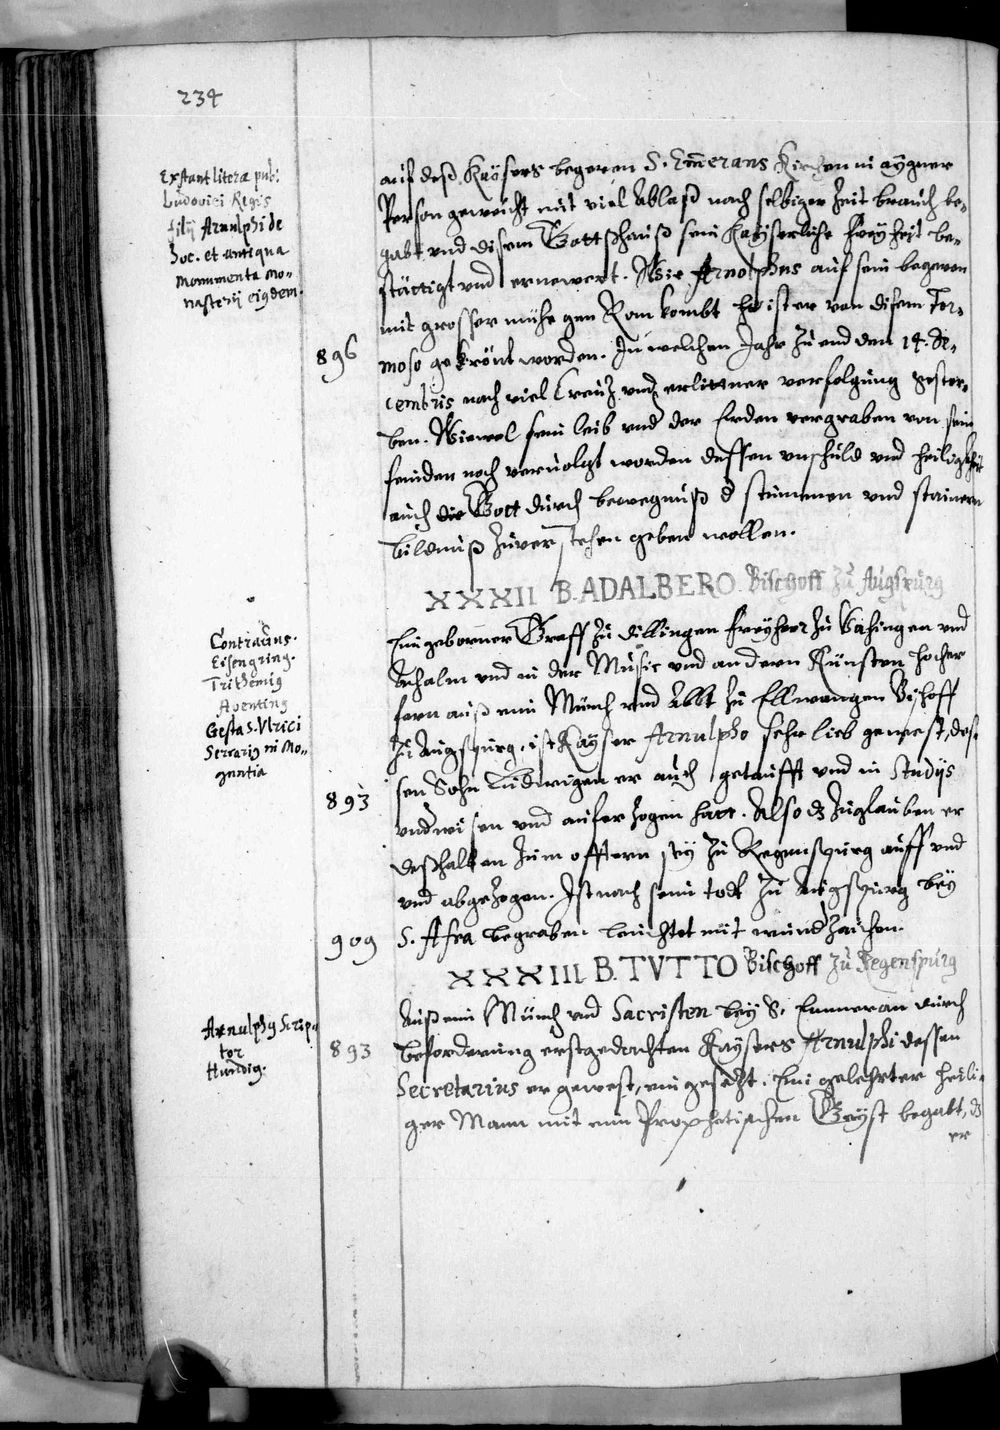 234
Extant literæ pub:
Ludovici Regis
filij Arnulphi de
hoc. et antiqua
monumenta mo-
nasterij eiusdem.
auf deß Kaÿsers begeren S. Emerans Kirchen in aÿgner
Person geweicht mit viel Ablaß nach selbiger Zeit brauch be-
gabt vnd disem Gottshauß sein Kaÿserliche freÿheit be-
stättigt vnd ernewert. Wie Arnolphus auf sein begeren
mit grosser mühe gen Rom kombt ist er von disem For-
896
moso gekrönt worden. In welchen Jahr zu end den 14. De-
cembris nach viel Creutz vnd erlittner verfolgung gestor-
ben. Wiewol sein leib vnd der Erden vergraben von sein
feinden noch veruolgt worden dessen vnschuld vnd heiligkeit
auch die Gott durch bewegnuß d stummen vnd stainern
bildnuß zuverstehen geben wollen.
XXXII B. ADALBERO Bischoff zu Augspurg
Contractus.
Eisengring.
Trithemig
Aventing
Gesta S. Vlrici
Serrarig in Mo-
guntia
Ein geborner Graff zu Dillingen freÿherr zu Vahingen vnd
Achalm vnd in der Music vnd andern Künsten hocher
farn auß ein Münch vnd Abbt zu Ellwangen Bischoff
zu Augspurg, ist Kaÿser Arnulpho sehr lieb gewest, des-
893
sen Sohn Ludwigen er auch getaufft vnd in Studijs
vnderwisen vnd auferzogen hatt. Also dz zuglauben er
deßhalben zum offtern sÿ zu Regenspurg auff vnd
vnd abgezogen. Ist nach sein todt zu Augspurg beÿ
909
S. Afra begraben leuchtet mit wunderzaichen.
XXXIII B. TVTTO Bischoff zu Regenspurg
Arnulphg Scrip-
tor
Hundig.
Auß ein Münch vnd Sacristen beÿ S. Emmeran durch
893
beforderung erstgedachten Kaÿsers Arnulphi dessen
Secretarius er gewest, ein gesetzt. Ein gelehrter heili-
ger Mann mit ein Prophetischen Geÿst begabt, dz
er